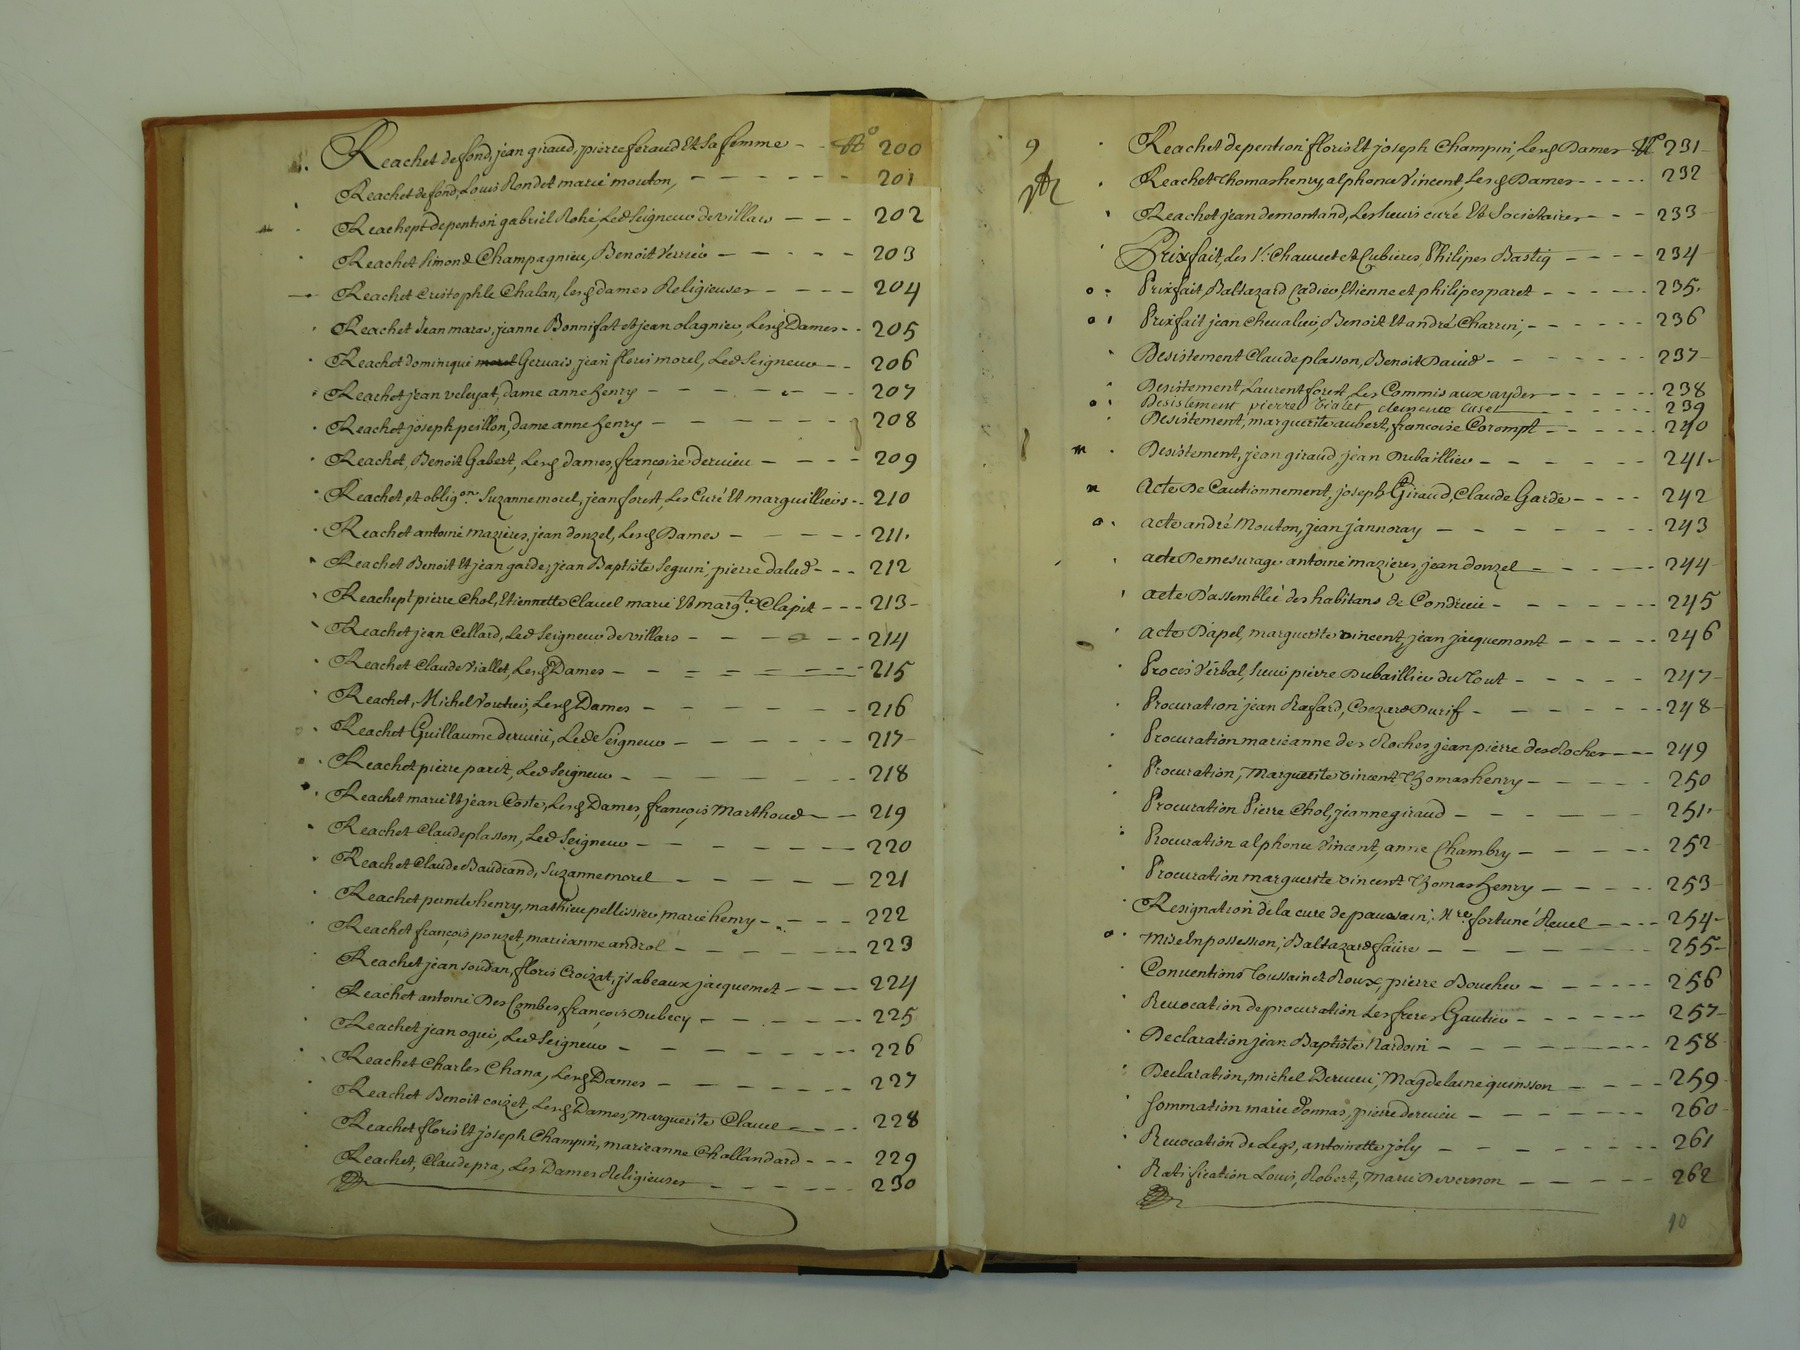 Reachet de fond, jean giraud, pierre feraud Et Sa femme - - N° 200
Reachet de fond, Louis Rondet marié mouton, - - - - - - - 201
Reachept de pention gabriël Rohé, Led Seigneur de villars - - - 202
Reachet Simond Champagnieu, Benoit Verrier - - - - - 203
Reachet Cristophle Chalan, les d dames Religieuses - - - - 204
Reachet Jean maras, jeanne Bonnifat et jean olagnier, Les d Dames - - 205
Reachet dominiqui Gervais jean floris morel, Led Seigneur - - 206
Reachet jean veleyat, dame anne henry - - - - - - 207
Reachet joseph peillon, dame anne henry - - - - - 208
Reachet, Benoit Gabert, Les d dames, françoise dervieu - - - - 209
Reachet, et oblig.on Suzanne morel, jean forest, Les Curé Et marguilliers - - 210
Reachet antoine mazieres, jean donzel, Les d Dames - - - - - 211.
Reachet Benoit Et jean garde, jean Baptiste Seguin, pierre dalud - - - 212
Reachept pierre Chol, Etiennette Clavel marié Et marg.te Clapit - - - 213 -
Reachet jean Cellard, Led Seigneur de villars - - - - - - 214
Reachet Claude Viallet, Les d Dames - - - - - - - - 215
Reachet, Michel Voutier, Les d Dames - - - - - - 216
Reachet Guillaume dervieu, Led Seigneur - - - - - - 217 -
Reachet pierre paret, Led Seigneur - - - - - - - 218
Reachet marie Et jean Coste, Les d Dames, françois Marthoud - - 219
Reachet Claude plasson, Led Seigneur - - - - - - 220
Reachet Claude Baudrand, Suzanne morel - - - - - 221
Reachet henry, mathieu pellissier, marie henry - - - - 222
Reachet françois pouzet, marianne androl - - - - - - 223
Reachet jean soudan, floris Croizat, jsabeaux jacquemet - - - - 224
Reachet antoine Des Combes, françois Dubecy - - - - - - 225
Reachet jean oguié, Led Seigneur - - - - - - - 226
Reachet Charles Chana, Les d Dames - - - - - - - 227
Reachet Benoit coizet, Les d Dames, Marguerite Clavel - - - - 228
Reachet floris Et joseph Champin, marieanne Challandard - - - 229
Reachet, Claude pra, Les Dames Religieuses - - - - - - 230
9
Reachet de pention floris Et joseph Champin, Les d Dames N° 231
Reachet Thomas henry, alphonce Vincent, Les d Dames - - - - - 232
Reachet jean de montand, Les sieurs curé Et Societaires - - - 233
Prixfait, Les Srs Chauvet et Cubieres, Philipes Bastig - - - - 234
Prixfait, Baltazard Cadieu, Etienne et philipes paret - - - - - 235.
Prixfait jean Chevalier, Benoit Et andré Charrin, - - - - - - 236
Desistement Claude plasson, Benoit David - - - - - - - 237
Desistement, Laurent forest, Les Commis aux aydes - - - - - 238
Desistement pierre Vialet clemence Cuset - - - - - 239
Desistement, marguerite aubert, françoise Corompt - - - - - 240
Desistement, jean giraud jean Dubaillier - - - - - - 241 -
Acte De Cautionnement, joseph Giraud, Claude Garde - - - - 242
acte andré Mouton, jean jannoray - - - - - - - 243
acte De mesurage antoine mazieres, jean donzel - - - - 244
acte D'assemblée des habitans de Condrieu - - - - - - - 245
acte D'apel, marguerite vincent, jean jacquemont - - - - - 246
Procés Verbal, Sieur pierre Dubaillier du Tout - - - - - 247
Procuration jean Rasfard, Coezard Durif - - - - - - - 248
Procuration marieanne des Roches, jean pierre des Roches - - - 249
Procuration, Marguerite vincent Thomas henry - - - - - 250
Procuration Pierre Chol, jeanne giraud - - - - - - 251.
Procuration alphonce Vincent, anne Chambry - - - - - 252
Procuration marguerite vincent Thomas henry - - - - - 253
Resignation de la cure de pavesain, Mre fortuné Revel - - - - 254 -
Mise En possession, Baltazard faure - - - - - - 255 -
Conventions Toussainct Roux, pierre Boucher - - - - - - 256
Revocation de procuration Les freres Gautier - - - - - - 257 -
Declaration jean Baptiste Nardoin - - - - - - - - 258
Declaration, michel Dervieu, Magdelaine quinsson - - - - - 259
Sommation marie Donnas, pierre dervieu - - - - - - - 260
Revocation de Legs, antoinette joly - - - - - - - 261
Ratification Louis, Robert, Marie Devernon - - - - - - 262
10